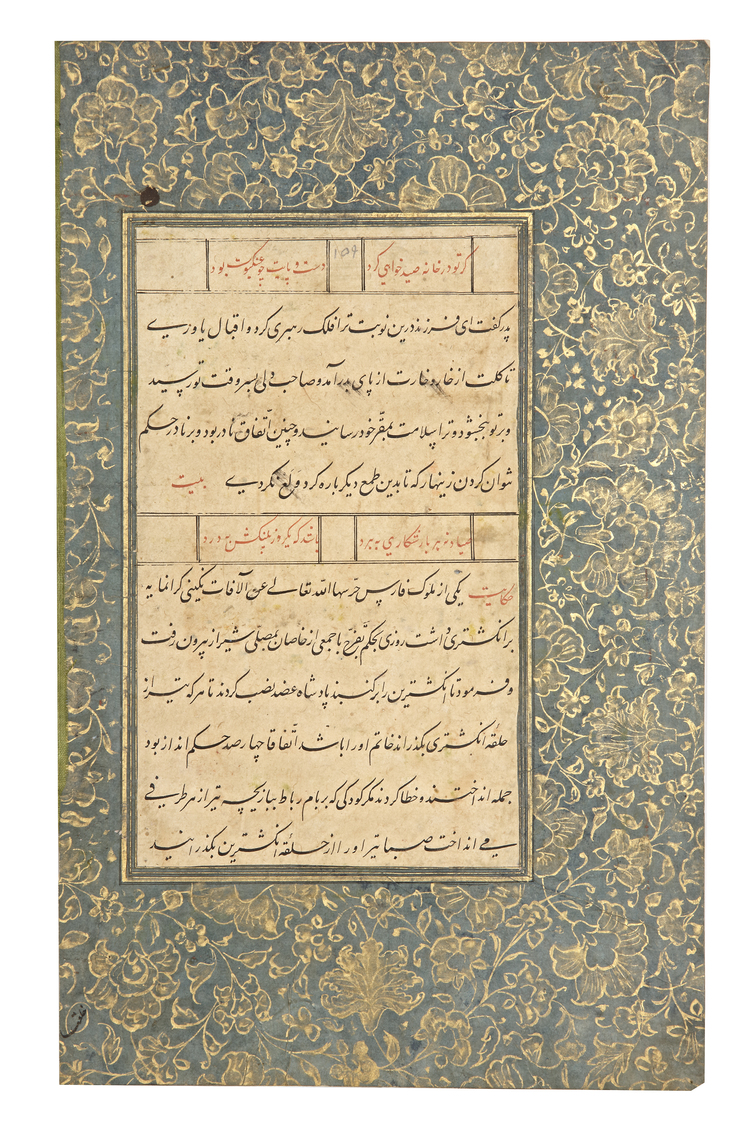 گر تو در خانه صید خواهی کرد
۱۵۹
دست و پایت چو عنکبوت بود
پدر گفت ای فرزند درین نوبت ترا فلک رهبری کرد و اقبال یاوری
تا کلت از خار و خارت از پای بدر آمد و صاحب دلی بسر وقت تو رسید
و بر تو ببخشود و ترا بسلامت بمقر خود رسانید و چنین اتفاق نادر بود و بر نادر حکم
نتوان کردن زینهار که تا بدین طمع دیگر باره کرد ولع نکردی بیت
صیاد نه هر بار شکاری ببرد
باشد که یکی روز پلنگش بدرد
حکایت یکی از ملوک فارس حرسها الله تعالی عن الآفات نکینی کرانمایه
بر انکشتری داشت روزی بحکم تفرج با جمعی از خاصان بمصلی شیراز بیرون رفت
و فرمود تا انکشترین را بر کنبد پادشاه عضد نصب کردند تا هر که تیر از
حلقه انکشتری بکذراند خاتم او را باشد اتفاقا چهار صد حکم انداز بود
جمله انداختند و خطا کردند مکر کودکی که بر بام رباط ببازیچه تیر از هر طرفی
می انداخت صبا تیر او را از حلقه انکشترین بکذرانید